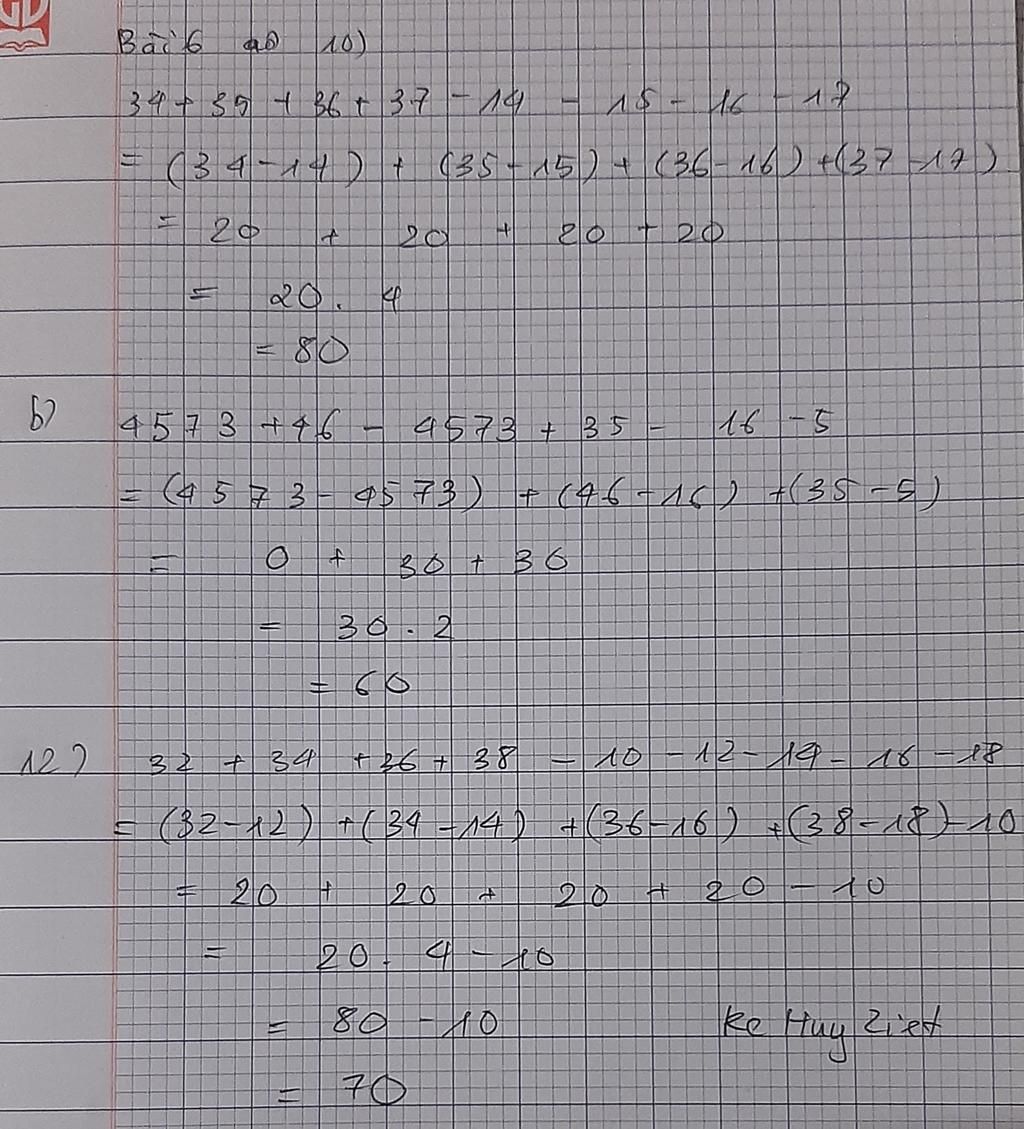 Bài 6 10)
34 + 35 + 36 + 37 - 14 - 15 - 16 - 17
= (34 - 14) + (35 - 15) + (36 - 16) + (37 - 17)
= 20 + 20 + 20 + 20
= 20 . 4
= 80
b) 4573 + 46 - 4573 + 35 - 16 - 5
= (4573 - 4573) + (46 - 16) + (35 - 5)
= 0 + 30 + 30
= 30 . 2
= 60
12) 32 + 34 + 36 + 38 - 10 - 12 - 14 - 16 - 18
= (32 - 12) + (34 - 14) + (36 - 16) + (38 - 18) - 10
= 20 + 20 + 20 + 20 - 10
= 20 . 4 - 10
= 80 - 10 Huy
= 70